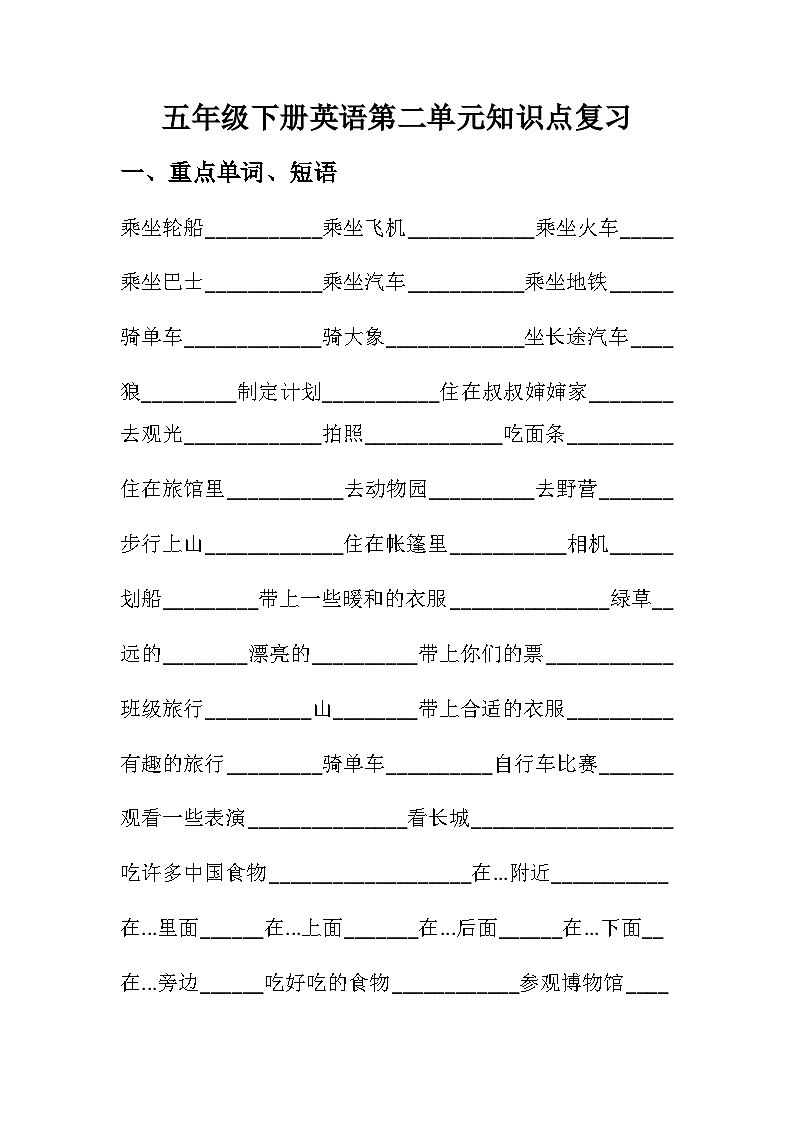 五年级下册英语第二单元知识点复习
一、重点单词、短语
乘坐轮船___________乘坐飞机____________乘坐火车_____
乘坐巴士___________乘坐汽车___________乘坐地铁______
骑单车_____________骑大象_____________坐长途汽车____
狼_________制定计划___________住在叔叔婶婶家________
去观光_____________拍照_____________吃面条__________
住在旅馆里___________去动物园__________去野营_______
步行上山_____________住在帐篷里___________相机______
划船_________带上一些暖和的衣服_______________绿草__
远的________漂亮的__________带上你们的票____________
班级旅行__________山________带上合适的衣服__________
有趣的旅行_________骑单车__________自行车比赛_______
观看一些表演_______________看长城___________________
吃许多中国食物___________________在…附近___________
在…里面______在…上面_______在…后面______在…下面__
在…旁边______吃好吃的食物____________参观博物馆____